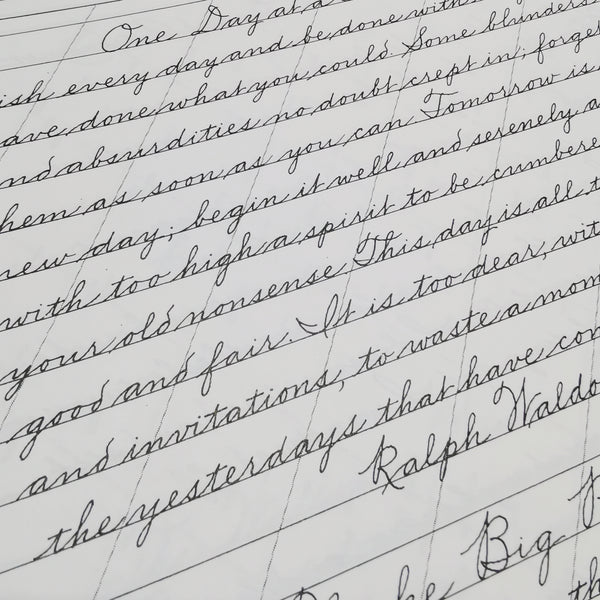 One Day at a
ish every day and be done with
ave done what you could Some blunders
nd absurdities no doubt crept in; forget
hem as soon as you can Tomorrow is
new day; begin it well and serenely a
with too high a spirit to be cumbere
your old nonsense This day is all t
good and fair. It is too dear, wit
and invitations, to waste a mom
the yesterdays that have con
Ralph Waldo
Big
th